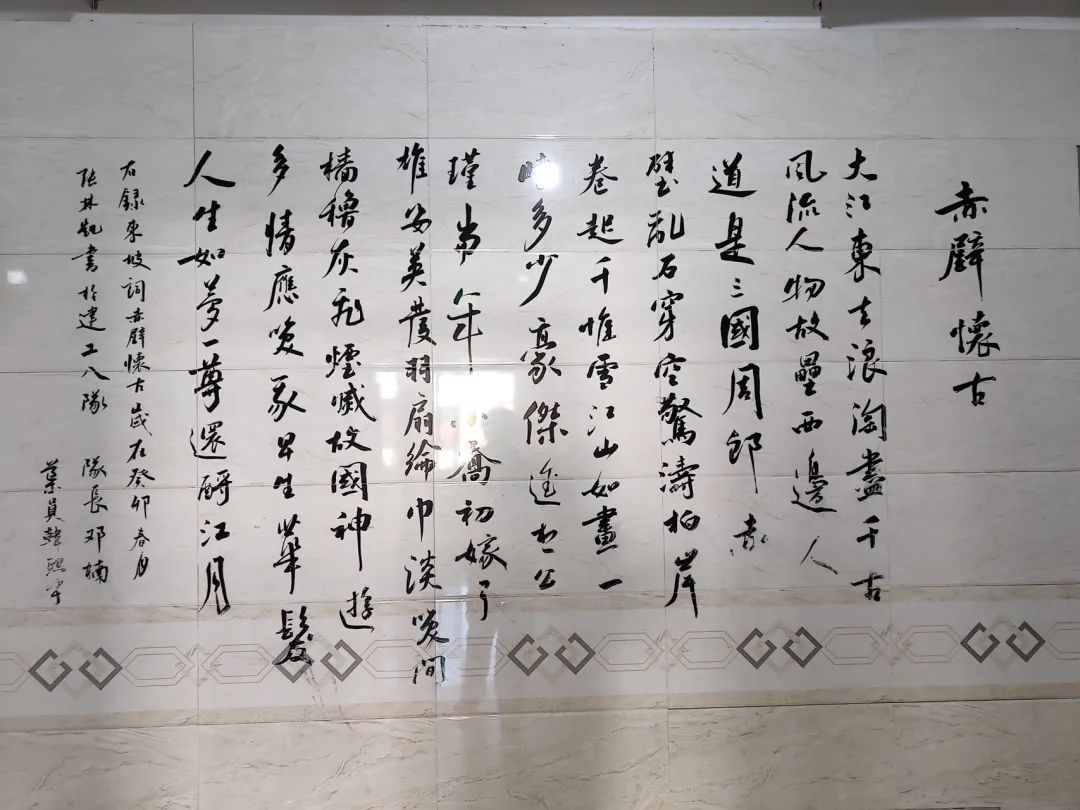 赤壁懷古
大江東去浪淘盡千古
風流人物故壘西邊人
道是三國周郎赤
壁亂石穿空驚濤拍岸
卷起千堆雪江山如畫一
時多少豪傑遙想公
瑾當年小喬初嫁了
雄姿英發羽扇綸巾淡笑間
檣櫓灰飛煙滅故國神遊
多情應笑我早生華髮
人生如夢一尊還酹江月
右錄東坡詞赤壁懷古歲在癸卯春月
张林凱書於建工八隊 隊長邓楠